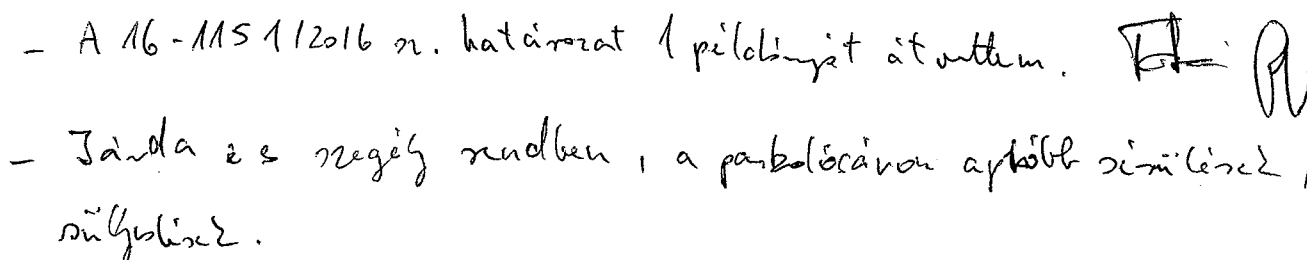 - A 16-1151/2016 sz. határozat 1 példányát átvettem.
- Járda és szegély rendben, a parkolósávon apróbb sérülések,
süllyedések.